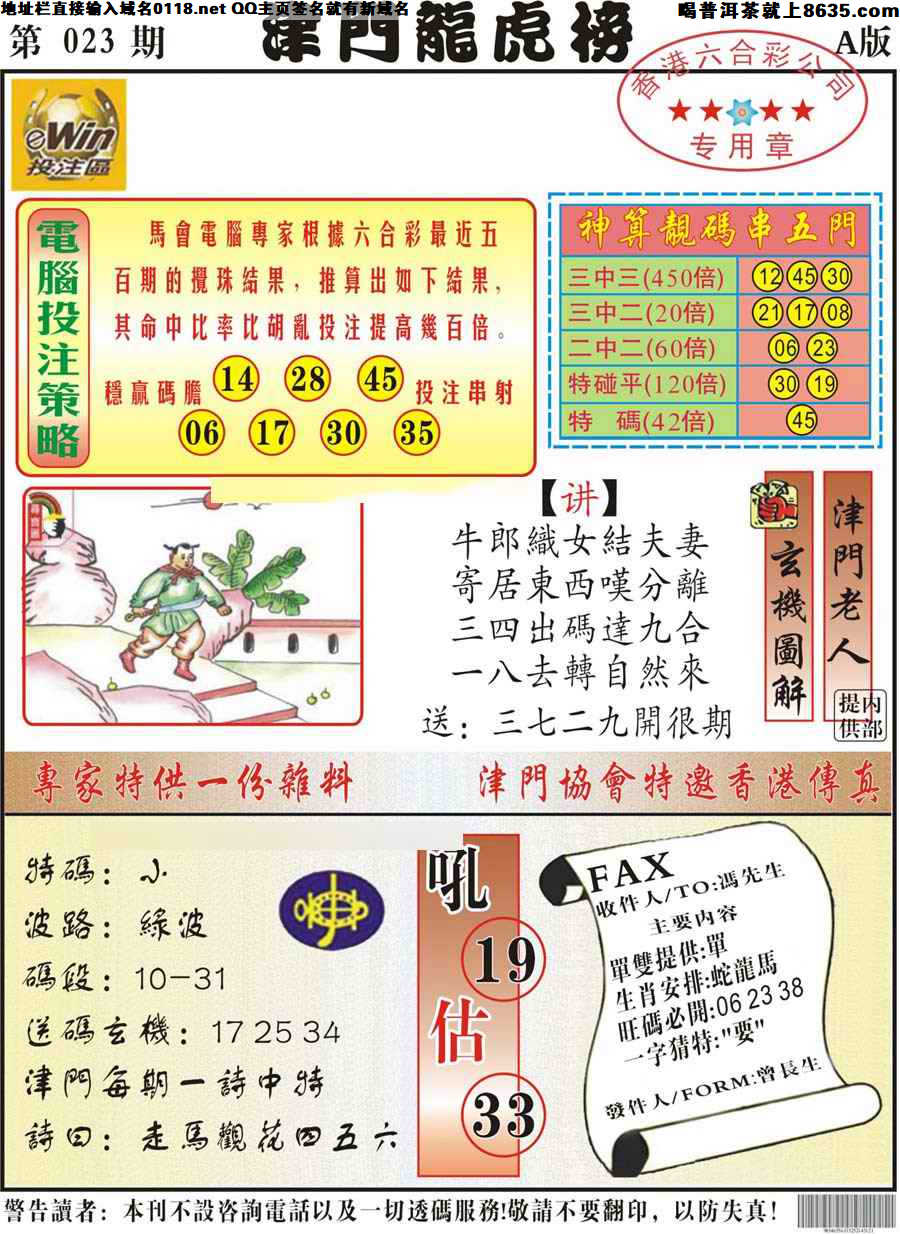 地址栏直接输入域名0118.net QQ主页签名就有新域名
喝普洱茶就上8635.com
第 023 期
津門龍虎榜
A版
香港六合彩公司
专用章
eWin
投注區
電腦投注策略
馬會電腦專家根據六合彩最近五
百期的攪珠結果，推算出如下結果，
其命中比率比胡亂投注提高幾百倍。
穩贏碼膽 14 28 45 投注串射
06 17 30 35
神算靚碼串五門
三中三(450倍) 12 45 30
三中二(20倍) 21 17 08
二中二(60倍) 06 23
特碰平(120倍) 30 19
特 碼(42倍) 45
【讲】
牛郎織女結夫妻
寄居東西嘆分離
三四出碼達九合
一八去轉自然來
送：三七二九開很期
玄機圖解
津門老人
内部提供
專家特供一份雜料
津門協會特邀香港傳真
特碼：小
波路：綠波
碼段：10-31
送碼玄機：17 25 34
津門每期一詩中特
詩曰：走馬觀花四五六
吼
19
估
33
FAX
收件人/TO:馮先生
主要内容
單雙提供:單
生肖安排:蛇龍馬
旺碼必開:06 23 38
一字猜特:"要"
發件人/FORM:曾長生
警告讀者：本刊不設咨詢電話以及一切透碼服務!敬請不要翻印，以防失真!